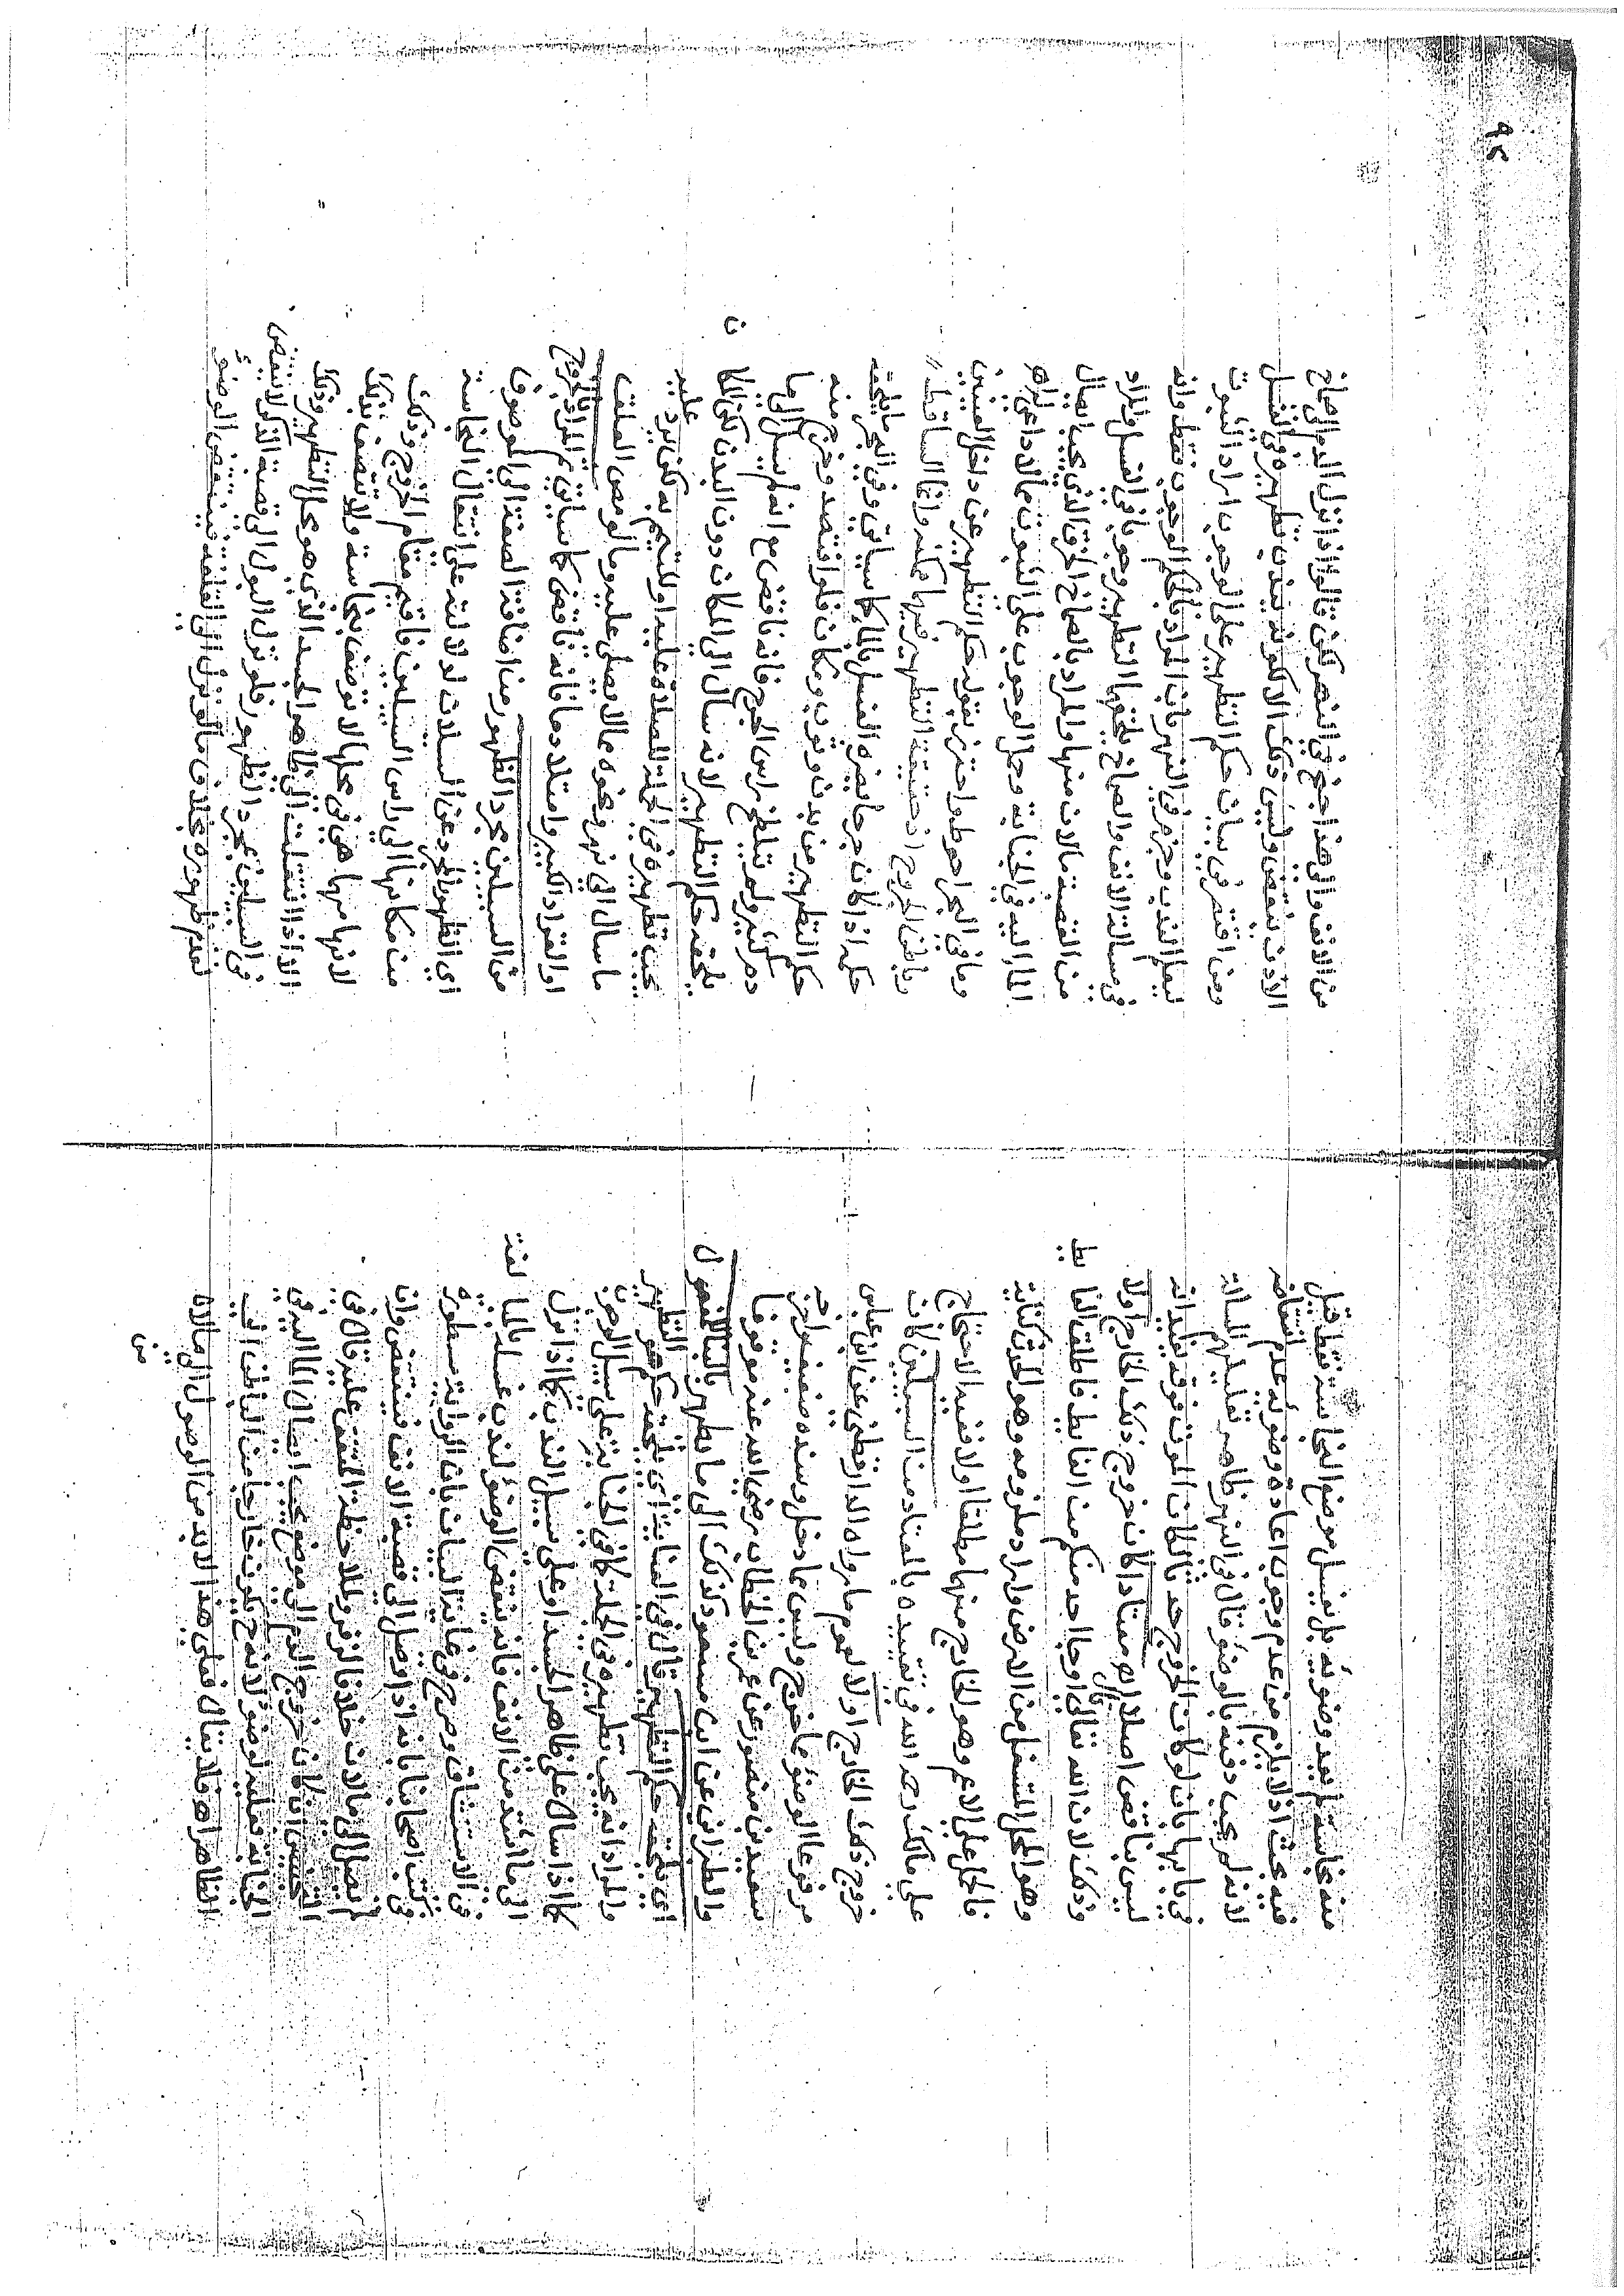 منه نجاسة لم يعد وضوئه بل يغسل موضع النجاسة فقط قيل
فيه بحث اذ لا يلزم من عدم وجوب اعادة وضوئه عدم انتقاضه
لانه لم يجب دفنه بالوضوء قال في النهر ظاهر تعليلهم المسالة
في بابها بان لو كان الخروج حدثا لكان الموت فوقه يفيد انه
ليس بناقض اصلا اه معتادا كان خروج ذلك الخارج اولا
وذلك لان الله تعالى قال اوجا احد منكم من الغايط فاطلق الغا يط
وهو المحل المتسفل من الارض واراد ملزومه وهو الحدث كناية
فالحمل على الاعم وهو الخارج منهما مطلقا اولا فيفيد الاحتجاج
على مالك رحمه الله في تقييده بالمعتاد من السبيلين كان
خروج ذلك الخارج اولا لعموم ما رواه الدارقطني عن ابن عباس
مرفوعا الوضوء مما خرج وليس مما دخل وسنده ضعيف واخرجه
سعيد بن منصور عن عمر بن الخطاب رضي الله عنه موقوفا
والطبراني عن ابن مسعود وكذلك الى ما يطهر بالبنا للمفعول
اي يلحقه حكم التطهير قال في العناية اي يلحقه حكم هو التطهير
والمراد انه يجب تطهيره في الجملة كما في الجنابة على سبيل الوجوب
كما اذا سال على ظاهر الجسد او على سبيل الندب كما اذا نزل
الى ما اشتد من الانف فانه ينقض الوضوء لندب غسله بالمبا لغة
في الاستنشاق وصرح في غاية البيان بان الرواية مسطورة
في كتب اصحابنا بانه اذا وصل الى قصبة الانف فينتقض وان
لم يصل الى ما لان خلافا لزفر وللاحظة المتفق عليه قال في
التجنيس ان كان خروج الدم الى موضع يجب ايصال الماء اليه في
الجنابة فعليه الوضوء لانه ح يكون خارجا من الباطن الى
الظاهر اه فلا يقال فعلى هذا لا بد من الوصول الى ما لان
من
٩٤
من الانف والى هذا جنح في النهر لكن قالوا اذا نزل الدم الى صماخ
الاذن نقض وليس ذلك الا لكونه يندب تطهيره في الغسل
ومن اقتصر في بيان حكم التطهير على الوجوب اراد الثبوت
ليعم الندب وجزم في النهر بان المراد بالحكم الوجوب فقط وانه
في مسالة الانف والصماخ يلحقهما التطهير وجوبا في الغسل والمراد
من القصبة ما لان منها والمراد بالصماخ الخرق الذي يجب ايصال
الماء اليه في الجنابة وحمل الوجوب على الثبوت مما لا داعي له اه
وما في البحر احوط واحترز بقوله حكم التطهير عن داخل العينين
وباطن الجروح اذ حقيقة التطهير فيها ممكنة وانما الساقط
حكمه اذا كان جرحا يضره الغسل بالماء كما سياتي وفي البحر ما يلحقه
حكم التطهير من بدن وثوب ومكان فلو افتصد وخرج منه
دم كثير ولم يتلطخ راس الجرح فانه ناقض مع انه لم يسل الى ما
يلحقه حكم التطهير لانه سال الى المكان دون البدن لكن المكا ن
يجب تطهيره في الجملة للصلاة عليه او للتيمم به لكن يرد عليه
ما سال الى نهر ونحوه مما لا يصلى عليه وما لو مص العلق
او القراد الكبير وامتلا دما فانه ناقض كما سياتي ثم المراد بالخروج
من السبيلين مجرد الظهور من اضافة الصفة الى الموصوف
اي الظهور المجرد عن السيلان لدلالته على انتقال النجاسة
من مكانها الى راس السبيلين فاقيم مقام الخروج وذلك
لانها ما هي في محلها لا توصف بنجاسة ولا تتصف بذلك
الا اذا انتقلت الى ظاهر الجسد الذي هو محل التطهير وذلك
في السبيلين بمجرد الظهور فلو نزل البول الى قصبة الذكر لا ينقض
لعدم ظهوره بخلاف ما لو نزل الى القلفة فينتقض الوضوء